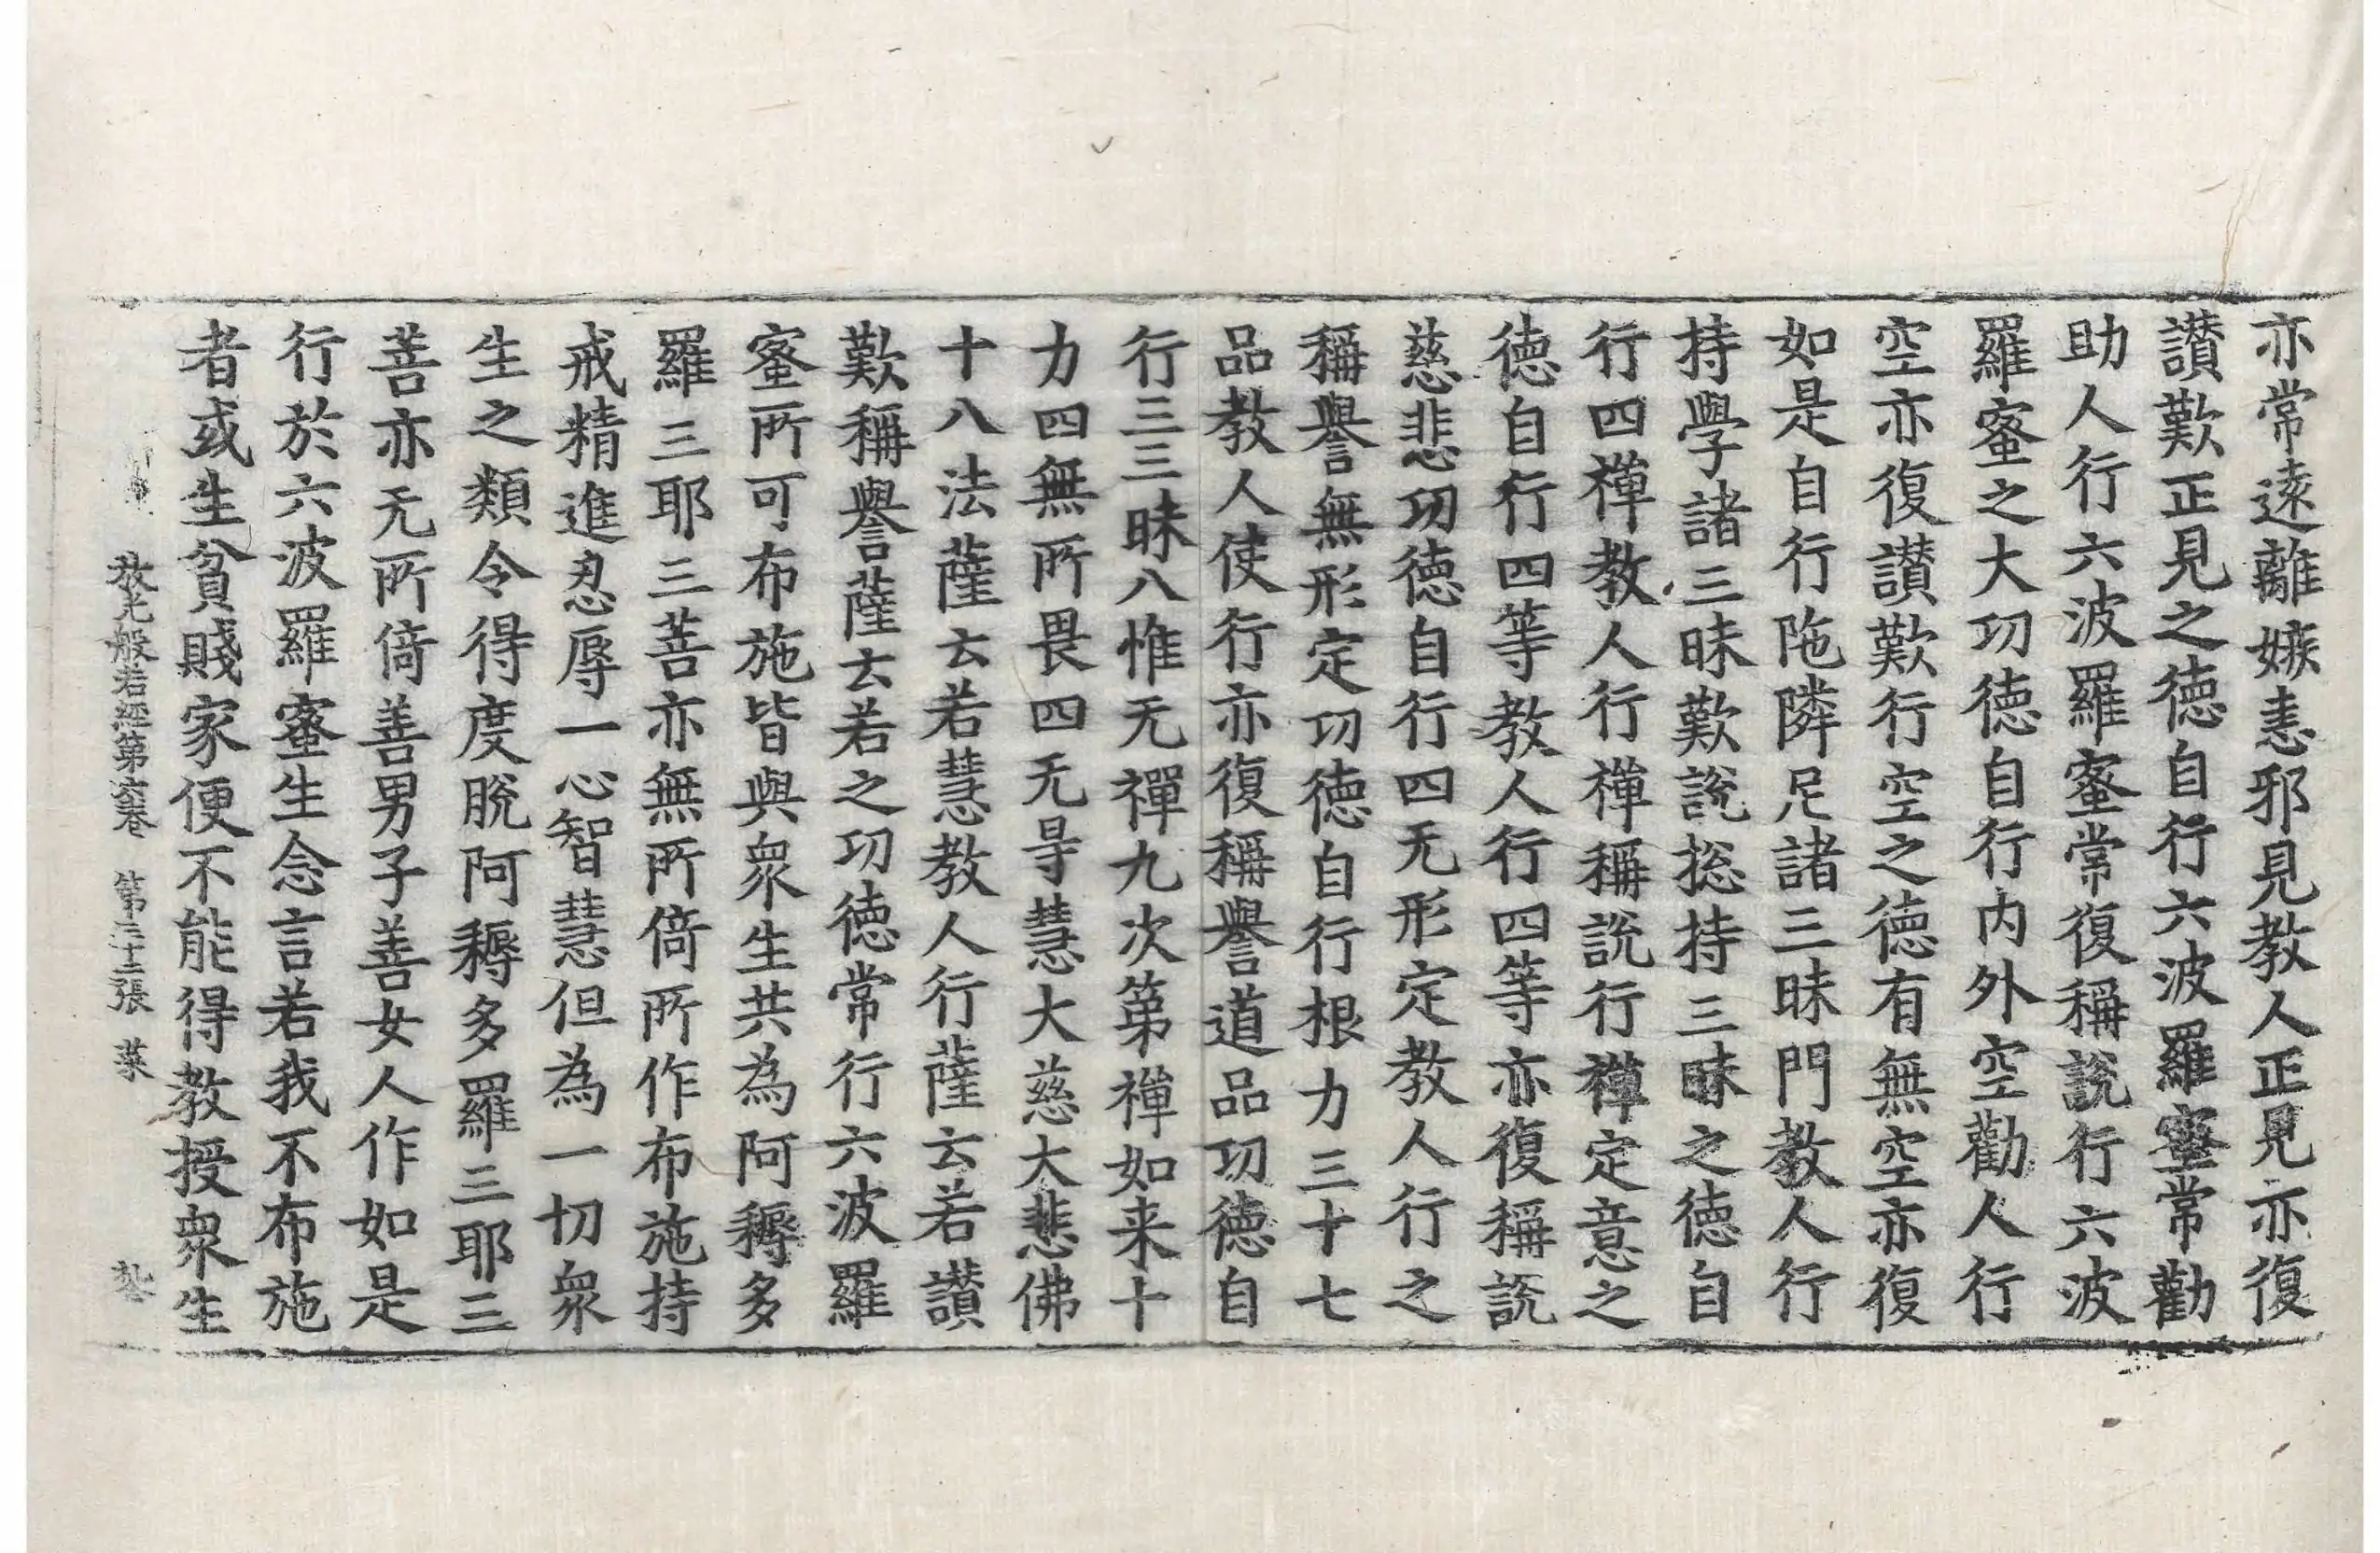 亦常遠離嫉恚邪見教人正見亦復
讃歎正見之徳自行六波羅蜜常勸
助人行六波羅蜜常復稱說行六波
羅蜜之大功徳自行内外空勸人行
空亦復讃歎行空之徳有無空亦復
如是自行陁隣尼諸三昧門教人行
持學諸三昧歎說捴持三昧之徳自
行四禪教人行禪稱說行禪定意之
徳自行四等教人行四等亦復稱說
慈悲功徳自行四无形定教人行之
稱譽無形定功徳自行根力三十七
品教人使行亦復稱譽道品功徳自
行三三昧八惟无禪九次第禪如来十
力四無所畏四无㝵慧大慈大悲佛
十八法薩云若慧教人行薩云若讃
歎稱譽薩云若之功徳常行六波羅
蜜所可布施皆與衆生共為阿耨多
羅三耶三菩亦無所倚所作布施持
戒精進忍辱一心智慧但為一切衆
生之類令得度脫阿耨多羅三耶三
菩亦无所倚善男子善女人作如是
行於六波羅蜜生念言若我不布施
者或生貧賤家便不能得教授衆生
放光般若經第六卷　第二十二張　菜